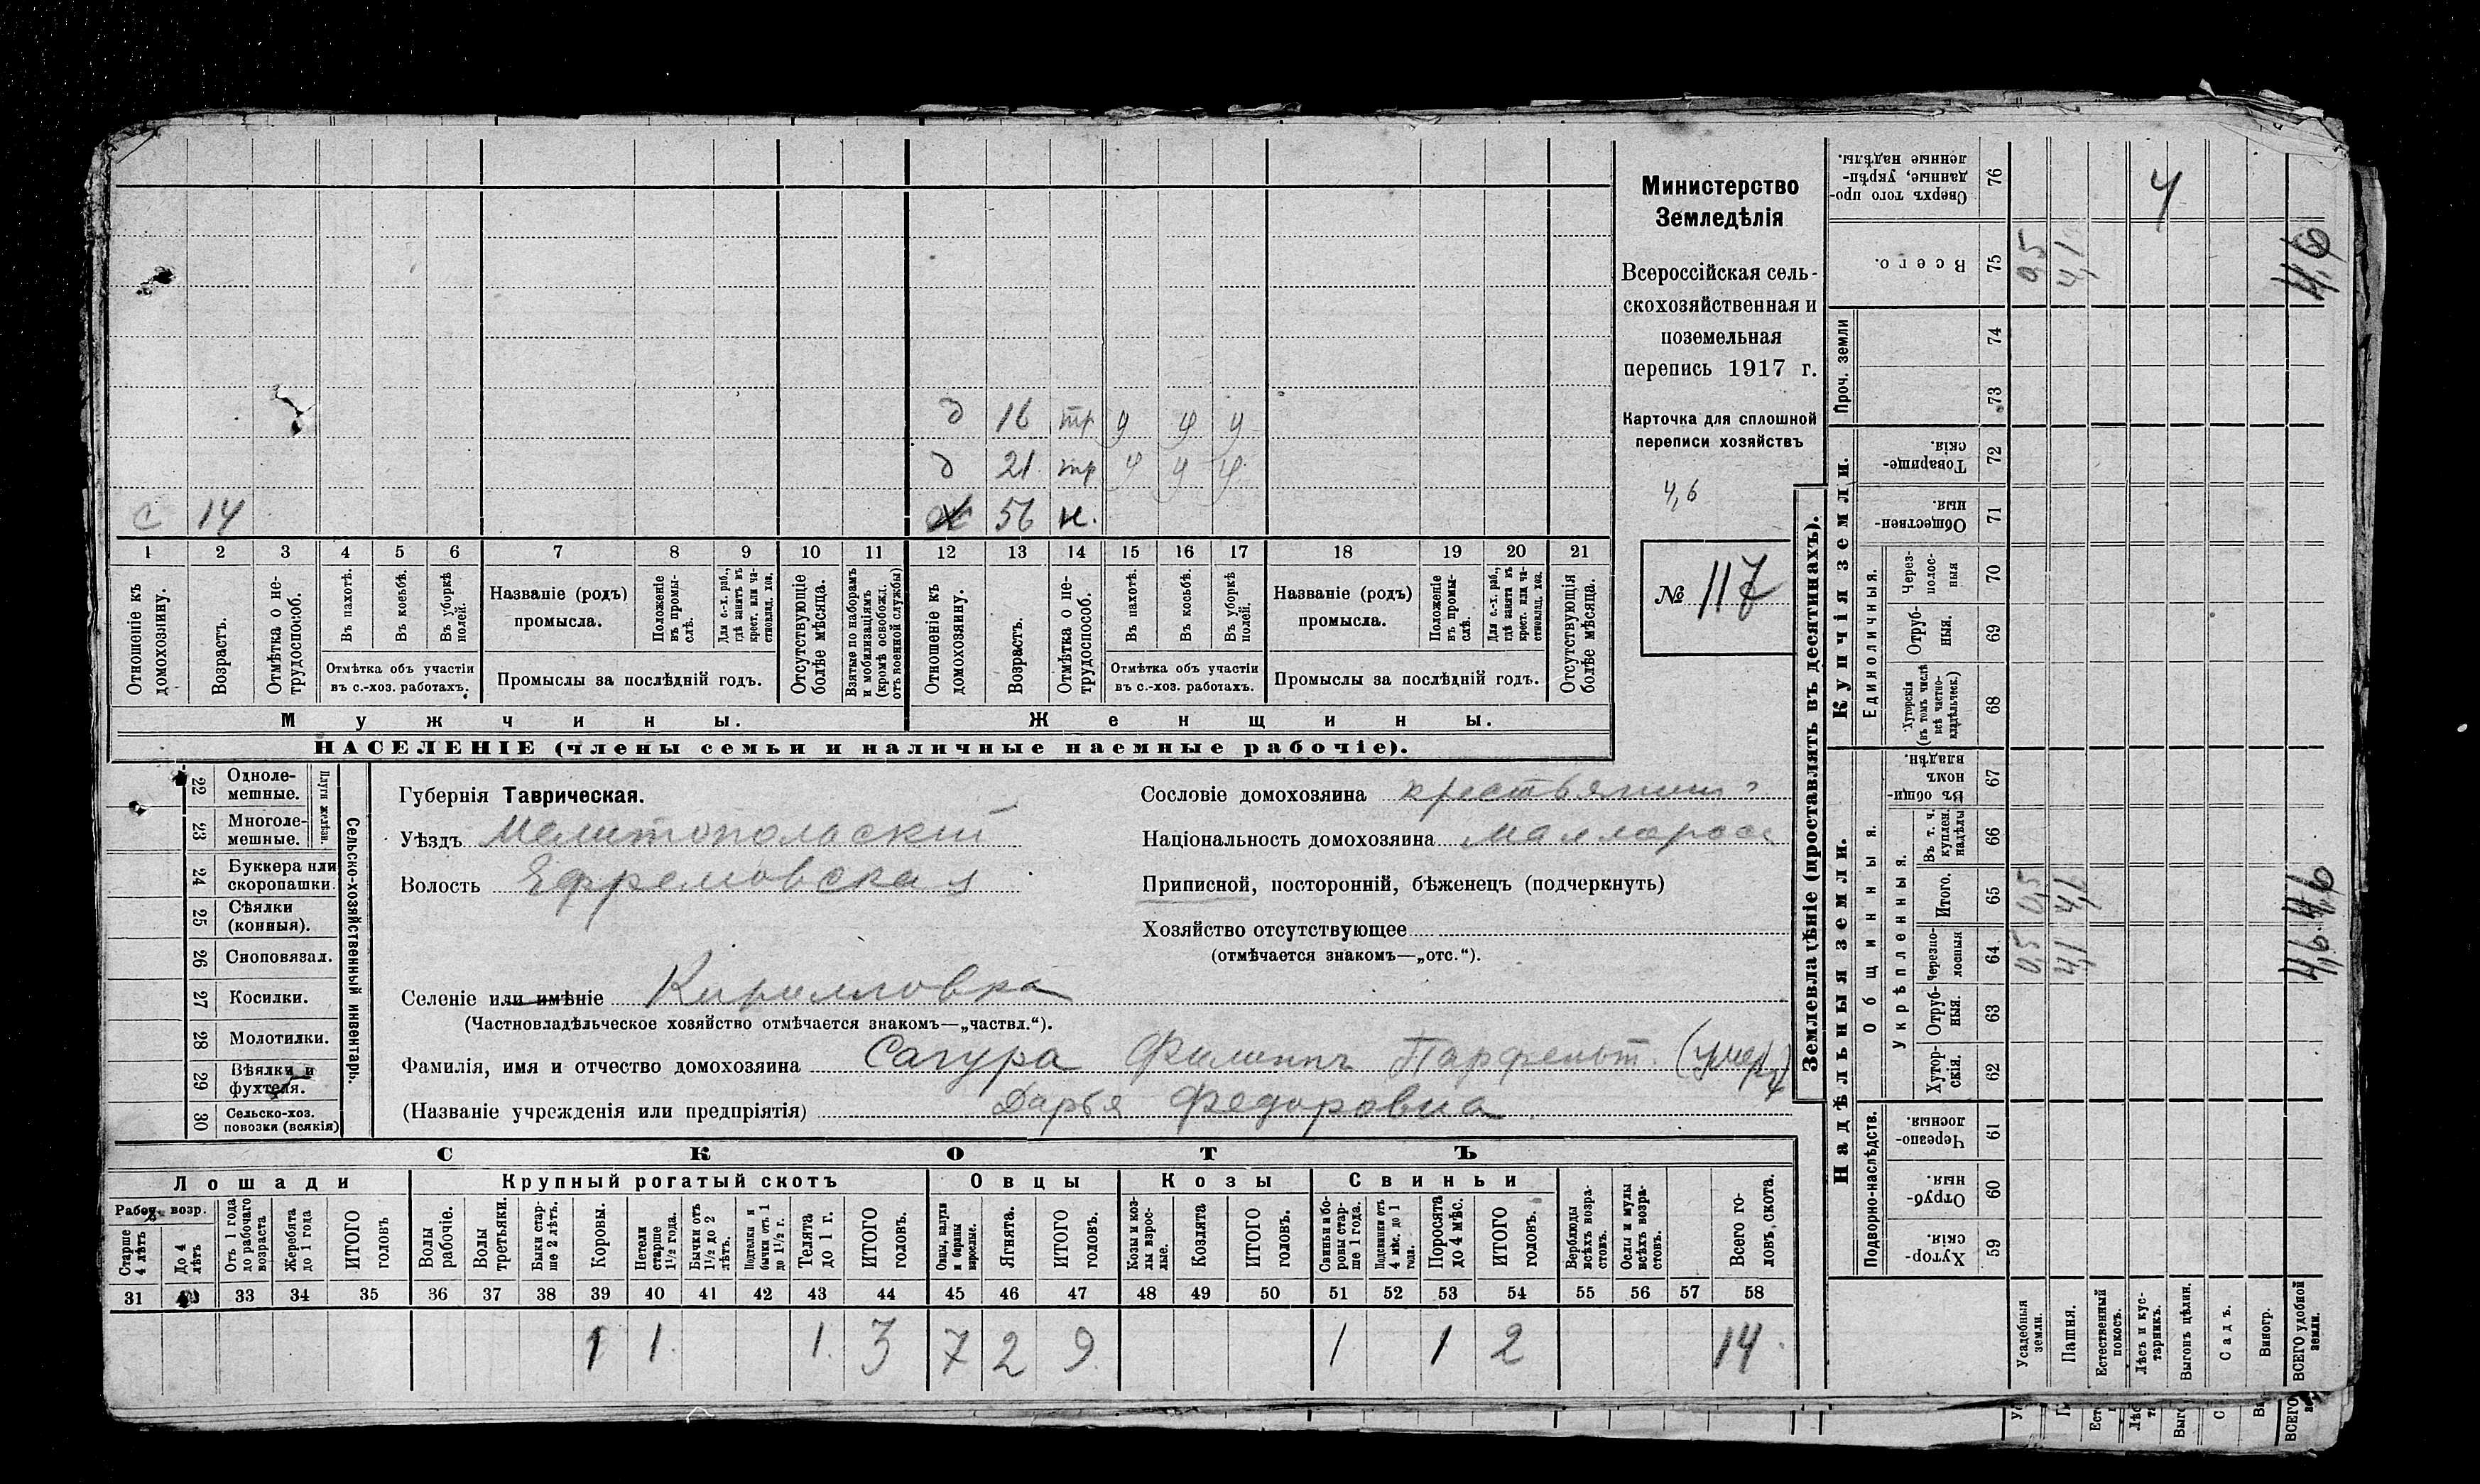 Министерство
Земледѣлія
Всероссійская сель-
скохозяйственная и
поземельная
перепись 1917 г.
Карточка для сплошной
переписи хозяйствъ
4,6
№ 117
д 16 тр у у у
д 21 тр у у у
с 14
56 н.
1 2 3 4 5 6 7 8 9 10 11 12 13 14 15 16 17 18 19 20 21
Отношеніе къ домохозяину.
Возрастъ.
Отмѣтка о не-трудоспособ.
Въ пахотѣ.
Въ косьбѣ.
Въ уборкѣ полей.
Отмѣтка объ участіи
въ с.-хоз. работахъ.
Названіе (родъ)
промысла.
Положеніе въ промы-слѣ.
Для с.-х. раб., гдѣ занятъ въ крест. или ча-стновлад. хоз.
Промыслы за послѣдній годъ.
Отсутствующіе болѣе мѣсяца.
Взятые по наборамъ и мобилизаціямъ (кромѣ освобожд. отъ военной службы)
Отношеніе къ домохозяину.
Возрастъ.
Отмѣтка о не-трудоспособ.
Въ пахотѣ.
Въ косьбѣ.
Въ уборкѣ полей.
Отмѣтка объ участіи
въ с.-хоз. работахъ.
Названіе (родъ)
промысла.
Положеніе въ промы-слѣ.
Для с.-х. раб., гдѣ занята въ крест. или ча-стновлад. хоз.
Промыслы за послѣдній годъ.
Отсутствующія болѣе мѣсяца.
Мужчины.
Женщины.
НАСЕЛЕНІЕ (члены семьи и наличные наемные рабочіе).
22 Одноле-мешные.
23 Многоле-мешные.
Плуги желѣзн.
24 Буккера или скоропашки.
25 Сѣялки (конныя).
26 Сноповязал.
27 Косилки.
28 Молотилки.
29 Вѣялки и фухтеля.
30 Сельско-хоз. повозки (всякія)
Сельско-хозяйственный инвентарь.
Губернія Таврическая.
Уѣздъ Мелитопольскій
Волость Ефремовская
Селеніе или имѣніе Кирилловка
(Частновладѣльческое хозяйство отмѣчается знакомъ—„частвл.“).
Фамилія, имя и отчество домохозяина Сагура Филиппъ Парфент. (умер)
(Названіе учрежденія или предпріятія) Дарья Федоровна
Сословіе домохозяина крестьянинъ
Національность домохозяина малоросс
Приписной, посторонній, бѣженецъ (подчеркнуть)
Хозяйство отсутствующее
(отмѣчается знакомъ—„отс.“).
СКОТЪ
Лошади
Крупный рогатый скотъ
Овцы
Козы
Свиньи
Рабоч. возр.
Старше 4 лѣтъ
До 4 лѣтъ
Отъ 1 года до рабочаго возраста
Жеребята до 1 года
ИТОГО головъ
Волы рабочіе.
Волы третьяки.
Быки стар-ше 2 лѣтъ.
Коровы.
Нетели старше 1½ года.
Бычки отъ 1½ до 2 лѣтъ.
Подтелки и бычки отъ 1 до 1½ г.
Телята до 1 г.
ИТОГО головъ.
Овцы, валухи и бараны взрослые.
Ягнята.
ИТОГО головъ.
Козы и коз-лы взрос-лые.
Козлята
ИТОГО головъ.
Свиньи и бо-ровы стар-ше 1 года.
Подсвинки отъ 4 мѣс. до 1 года.
Поросята до 4 мѣс.
ИТОГО головъ.
Верблюды всѣхъ возра-стовъ.
Ослы и мулы всѣхъ возра-стовъ.
Всего го-ловъ, скота.
31 33 34 35 36 37 38 39 40 41 42 43 44 45 46 47 48 49 50 51 52 53 54 55 56 57 58
1 1 1 3 7 2 9 1 1 2 14
Землевладѣніе (проставлять въ десятинахъ).
Надѣльныя земли.
Купчія земли.
Проч. земли
Подворно-наслѣдств.
Общинныя.
Укрѣпленныя.
Единоличныя.
76 Сверхъ того про-данные, укрѣп-ленные надѣлы.
4
75 Всего.
0,5 4,1 4,6
74
73
72 Товарище-скія.
71 Обществен-ныя.
70 Через-полос-ныя
69 Отруб-ныя.
68 Хуторскія (въ томъ числѣ всѣ частно-владѣльческ.)
67 Въ общи-номъ владѣн.
66 Въ т. ч. куплен. надѣлы
65 Итого.
0,5 4,1 4,6
64 Черезпо-лосныя
0,5 4,1 4,6
63 Отруб-ныя.
62 Хутор-скія.
61 Черезпо-лосныя.
60 Отруб-ныя.
59 Хутор-скія.
Усадебныя земли.
Пашня.
Естественный покосъ.
Лѣсъ и кус-тарникъ.
Выгонъ цѣлин.
Садъ.
Виногр.
ВСЕГО удобной земли.